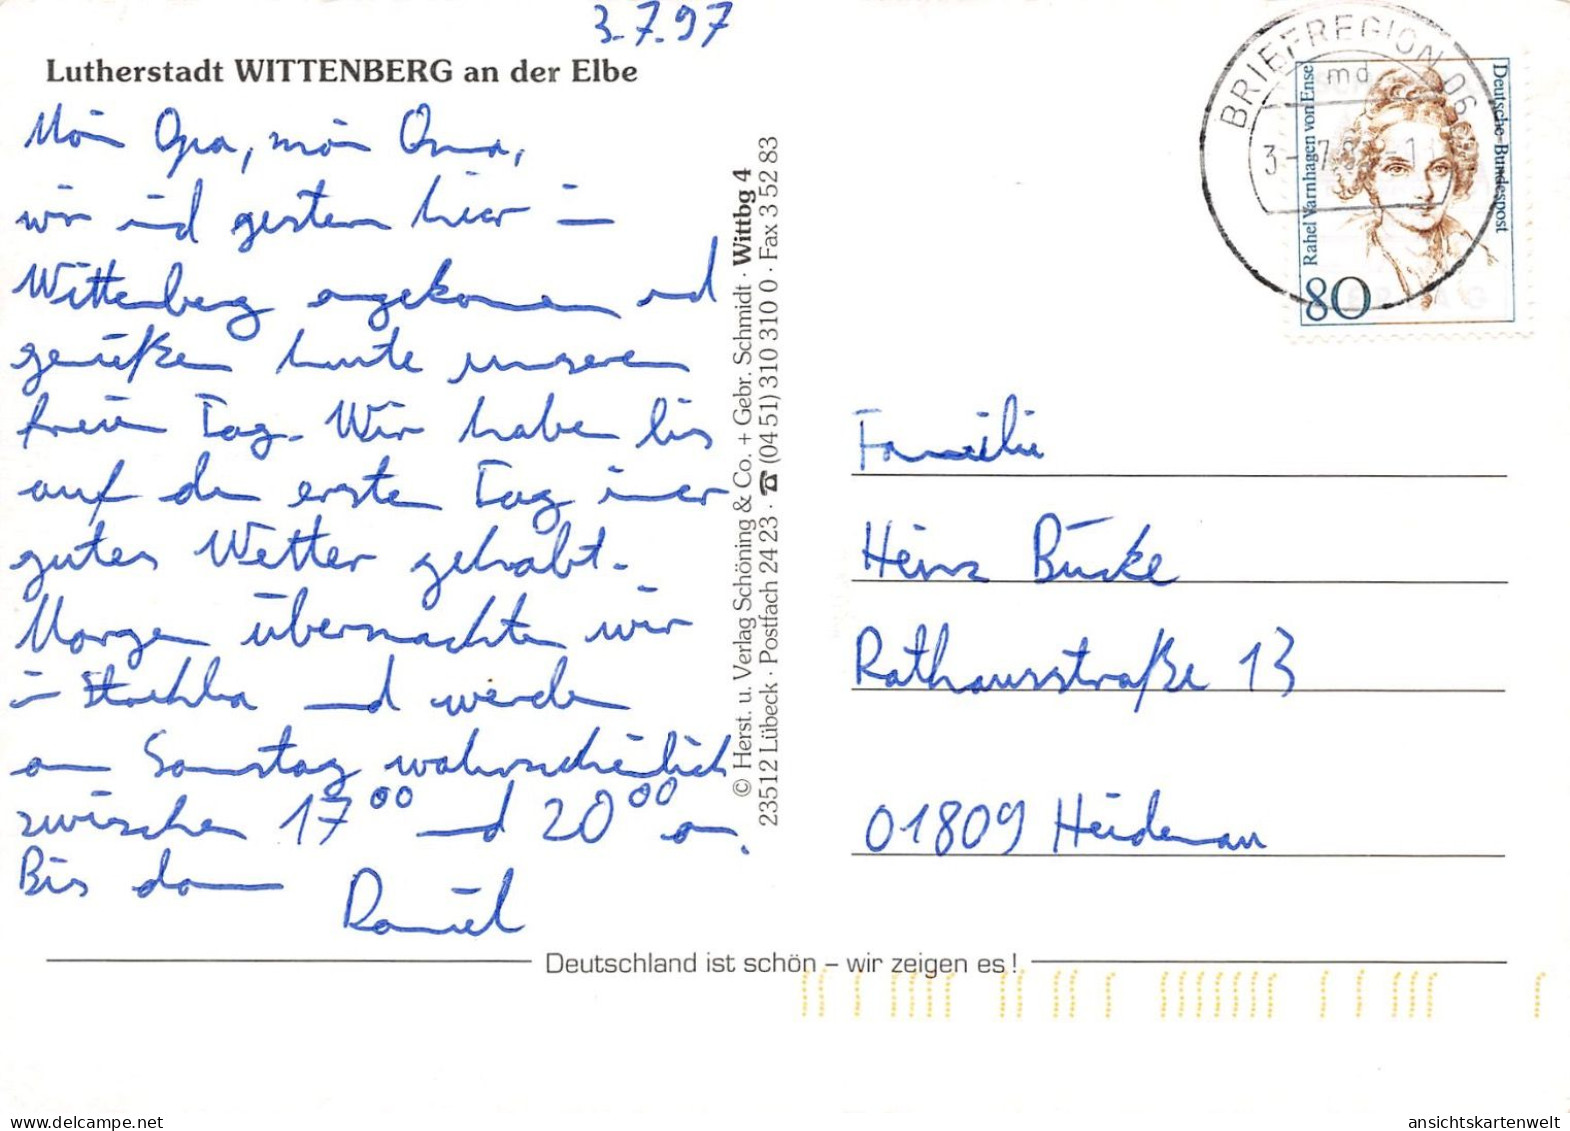 3.7.97
Lutherstadt WITTENBERG an der Elbe
Moin Opa, moin Oma,
wir sind gestern hier in
Wittenberg angekommen und
genießen heute unseren
freien Tag. Wir haben bis
auf den ersten Tag immer
gutes Wetter gehabt.
Morgen übernachten wir
in und werden
am Samstag wahrscheinlich
zwischen 17⁰⁰ und 20⁰⁰ an.
Bis dann
Daniel
© Herst. u. Verlag Schöning & Co. + Gebr. Schmidt · Wittbg 4
23512 Lübeck · Postfach 24 23 · ☎ (04 51) 310 310 0 · Fax 3 52 83
BRIEFREGION 06
md
Rahel Varnhagen von Ense
Deutsche Bundespost
80
Familie
Heinz Bücke
Rathausstraße 13
01809 Heidenau
Deutschland ist schön – wir zeigen es !
ansichtskartenwelt